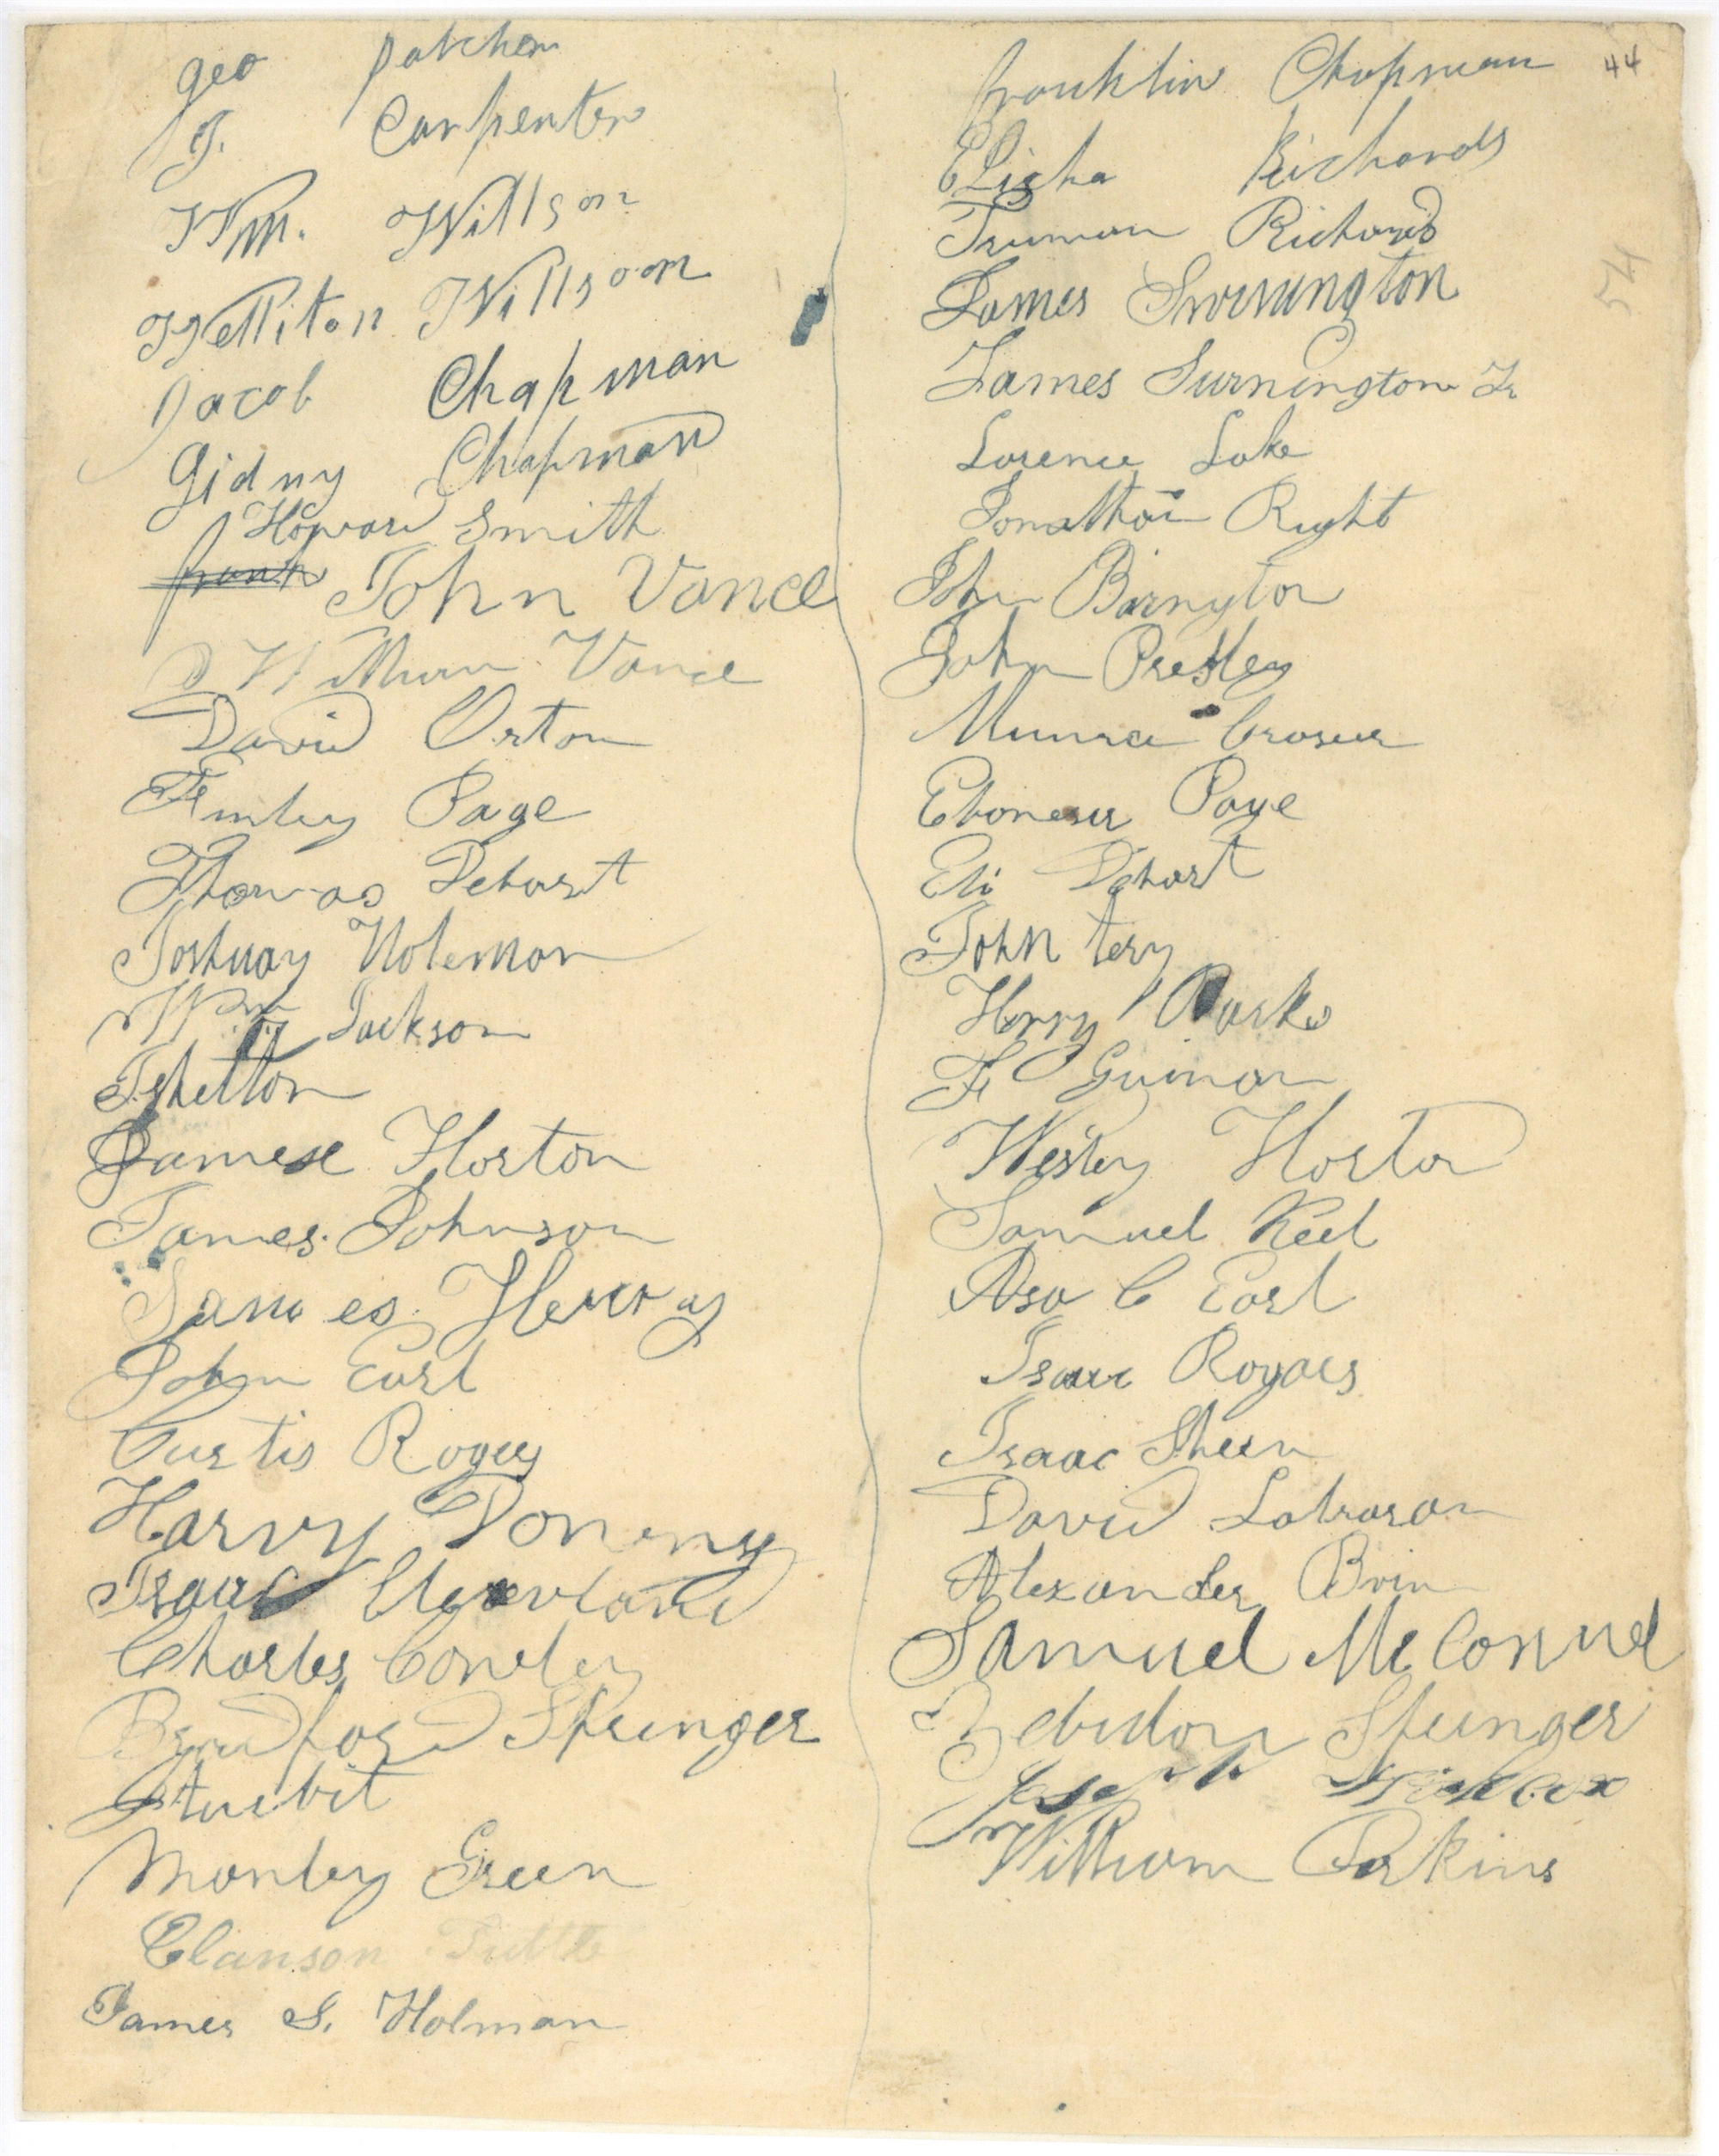 geo patchen
J. Carpenter
Wm. Willson
Willson
Jacob Chapman
Gidny Chapman
Howard Smith
frank John Vance
William Vance
David Orton
Finley Page
Thomas Dehart
Joshuay Holeman
Wm Jackson
Shelton
James Horton
James Johnson
James
John Earl
Curtis Rogers
Harvy
Isaac Cleaveland
Charles
Bradford Springer
Manley Green
Clanson Tuttle
James S. Holman
44
franklin Chapman
Elisha Richards
Truman Richards
54
James
James Surnington Jr
Lorence Lake
Jonathan Right
John Barngton
John Presley
Munrce
Eboneser Page
Eli Dehart
John tery
Henry Parks
F Guinan
Wesley Horton
Samuel Keel
Asa C Earl
Isaac Rogaes
Isaac Sheen
David
Alexander Brin
Samuel McConnel
Zebidon Springer
Joseph
William Perkins